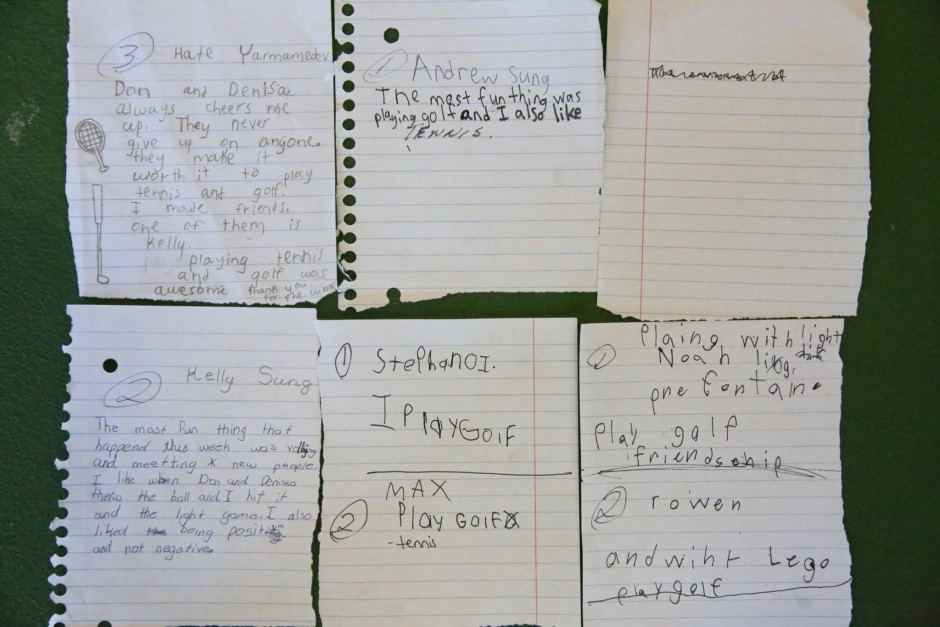 3 Hate Yarmamedov
Don and Denisa
always cheers me
up. They never
give up on anyone.
they make it
worth it to play
tennis and golf.
I made friends.
one of them is
Kelly.
playing tennis
and golf was
awesome thank you
for the work
1 Andrew Sung
The most fun thing was
playing golf and I also like
TENNIS.
2 Kelly Sung
The most fun thing that
happend this week was rallying
and meetting new people
I like when Don and Denisa
therw the ball and I hit it
and the light game. I also
liked being posit
and not negative.
1 StephanOI.
I PlAYGOlF
MAX
2 Play GOlF
-tennis
Plaing with light
1 Noah
pne fontain
Play golf
friendship
2 rowen
and wiht Lego
play golf